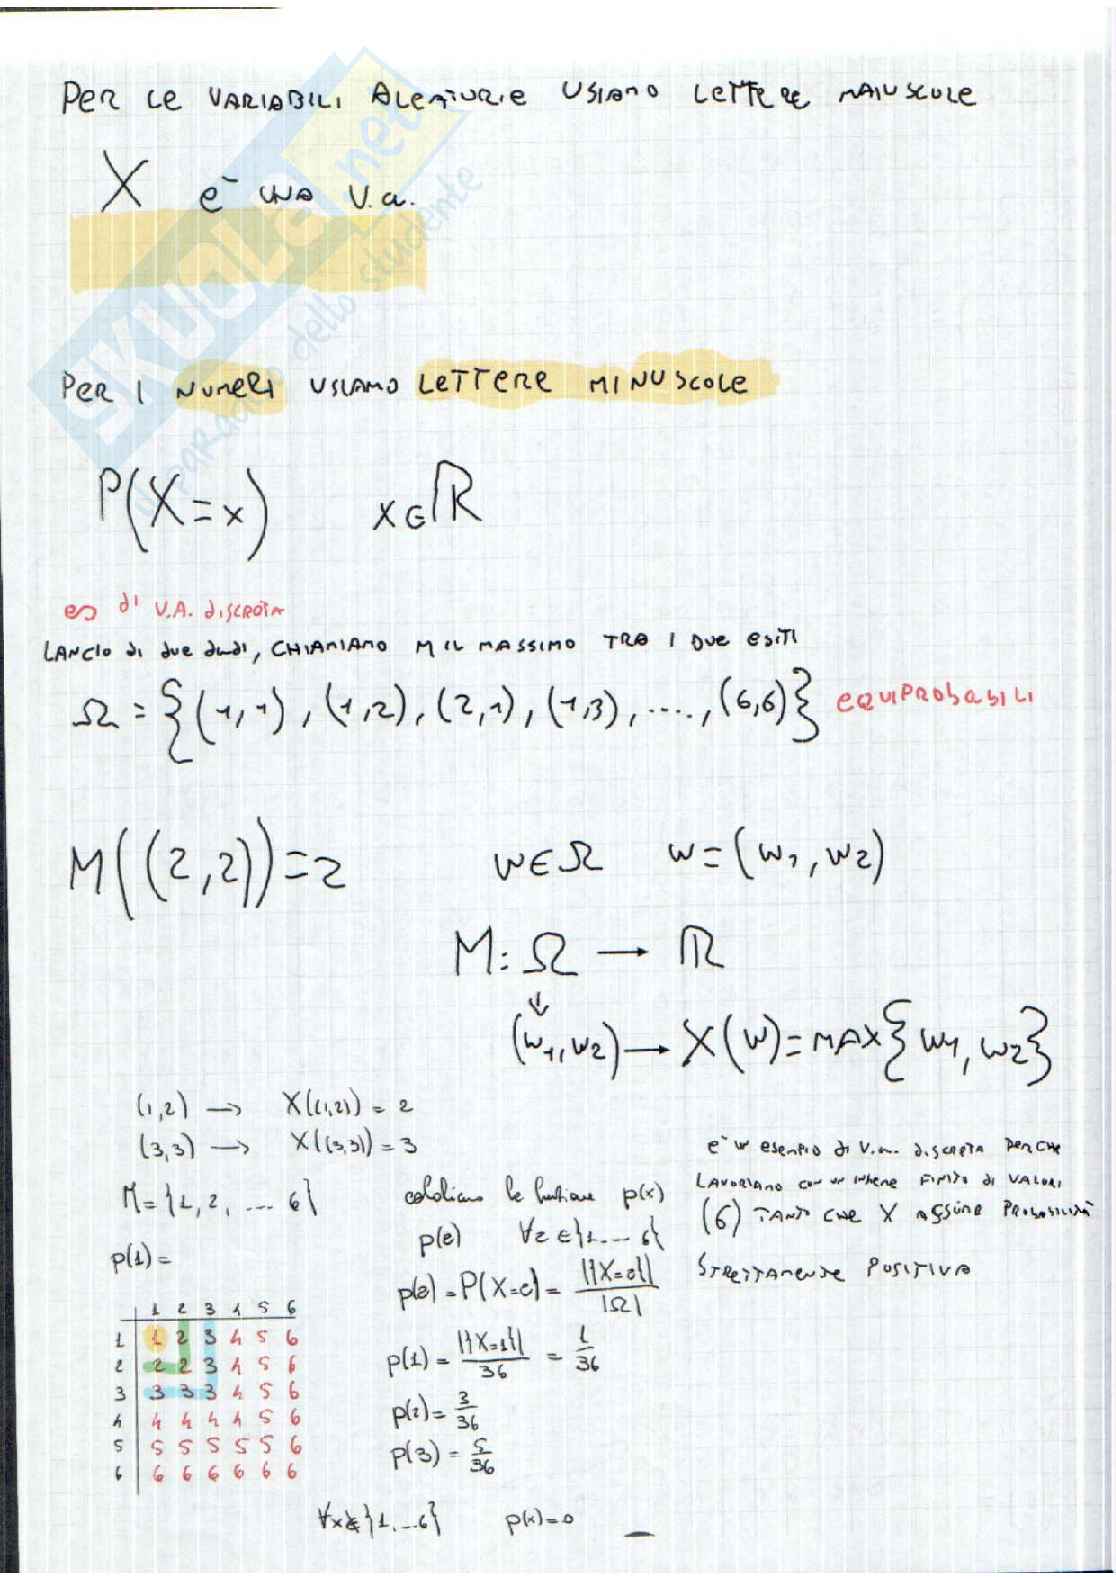 PER LE VARIABILI ALEATORIE USIAMO LETTERE MAIUSCOLE
X è UNA V.a.
PER I NUMERI USIAMO LETTERE MINUSCOLE
P(X=x) x∈ℝ
es di V.A. DISCRETA
LANCIO di due dadi, CHIAMIAMO M IL MASSIMO TRA I DUE ESITI
Ω = {(1,1), (1,2), (2,1), (1,3), ...., (6,6)} EQUIPROBABILI
M((2,2))=2 w∈Ω w=(w1,w2)
M: Ω → ℝ
(w1,w2) → X(w)=MAX{w1,w2}
(1,2) → X((1,2)) = 2
(3,3) → X((3,3)) = 3
M={1,2,...6}
p(1)=
calcoliamo la funzione p(x)
p(z) ∀z∈{1...6}
p(z)=P(X=z)= |{X=z}| / |Ω|
p(1)= |{X=1}| / 36 = 1/36
p(2)= 3/36
p(3)= 5/36
è un esempio di V.a. discreta PERCHE
LAVORIAMO CON UN INSIEME FINITO DI VALORI
(6) TANTO CHE X ASSUME PROBABILITÀ
STRETTAMENTE POSITIVA
1 2 3 4 5 6
1 1 2 3 4 5 6
2 2 2 3 4 5 6
3 3 3 3 4 5 6
4 4 4 4 4 5 6
5 5 5 5 5 5 6
6 6 6 6 6 6 6
∀x∉{1,...6} p(x)=0
SKUOLA.net
il paradiso dello studente